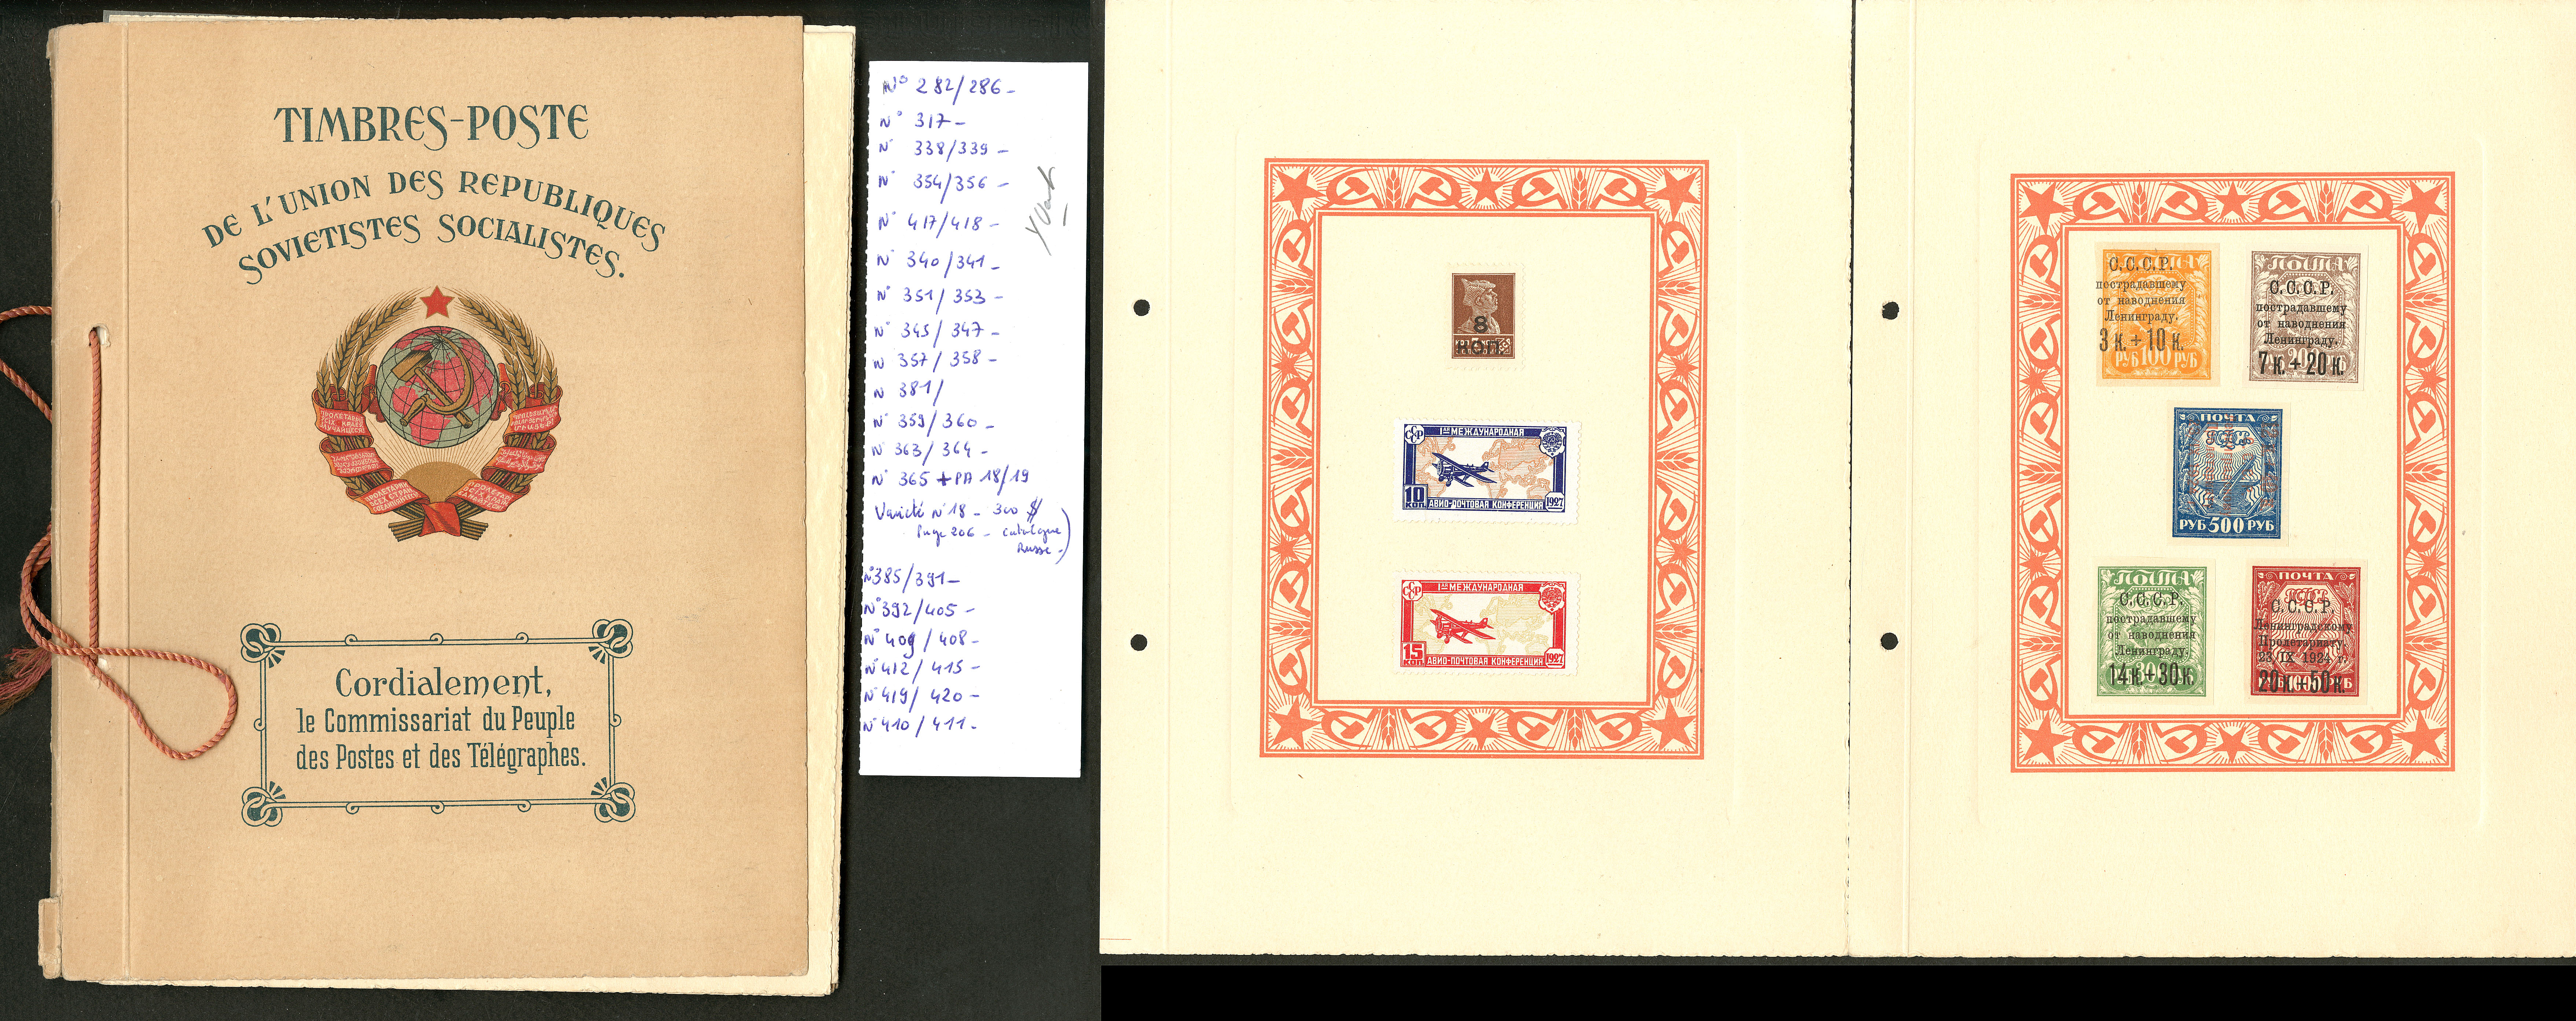 TIMBRES-POSTE
DE L'UNION DES REPUBLIQUES
SOVIETISTES SOCIALISTES.
Cordialement,
le Commissariat du Peuple
des Postes et des Télégraphes.
N° 282/286 -
N° 317 -
N° 338/339 -
N° 354/356 -
N° 417/418 -
N° 340/341 -
N° 351/353 -
N° 345/347 -
N 357/358 -
N 381/
N° 359/360 -
N° 363/364 -
N° 365 + PA 18/19
Variété n° 18 - 300 $
Page 206 - catalogue
Russe -)
N° 385/391 -
N° 392/405 -
N° 409/408 -
N° 412/415 -
N° 419/420 -
N° 410/411 -
Yvert
8
КОП.
СССР
1АЯ МЕЖДУНАРОДНАЯ
10 КОП.
АВИО-ПОЧТОВАЯ КОНФЕРЕНЦИЯ 1927
СССР
1АЯ МЕЖДУНАРОДНАЯ
15 КОП.
АВИО-ПОЧТОВАЯ КОНФЕРЕНЦИЯ 1927
С.С.С.Р.
пострадавшему
от наводнения
Ленинграду.
3 к. + 10 к.
РУБ 100 РУБ
ПОШТА
С.С.С.Р.
пострадавшему
от наводнения
Ленинграду.
7 к. + 20 к.
ПОЧТА
РУБ 500 РУБ
ПОШТА
С.С.С.Р.
пострадавшему
от наводнения
Ленинграду.
14 к. + 30 к.
ПОЧТА
С.С.С.Р.
Ленинградскому
Пролетариату.
23 IX 1924 г.
20 к. + 50 к.